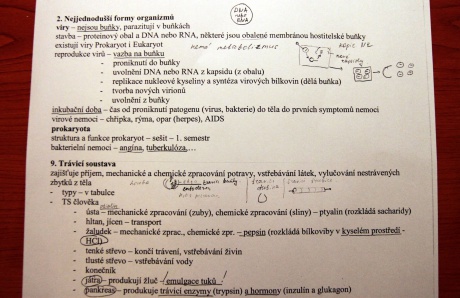 DNA
RNA
2. Nejjednodušší formy organizmů
viry – nejsou buňky, parazitují v buňkách
stavba – proteinový obal a DNA nebo RNA, některé jsou obalené membránou hostitelské buňky
existují viry Prokaryot i Eukaryot
nemá metabolizmus
reprodukce virů – vazba na buňku
- proniknutí do buňky
- uvolnění DNA nebo RNA z kapsidu (z obalu)
- replikace nukleové kyseliny a syntéza virových bílkovin (dělá buňka)
- tvorba nových virionů
- uvolnění z buňky
inkubační doba – čas od proniknutí patogenu (virus, bakterie) do těla do prvních symptomů nemoci
virové nemoci – chřipka, rýma, opar (herpes), AIDS
prokaryota
struktura a funkce prokaryot – sešit – 1. semestr
bakterielní nemoci – angína, tuberkulóza,…
9. Trávicí soustava
zajišťuje příjem, mechanické a chemické zpracování potravy, vstřebávání látek, vylučování nestrávených
zbytků z těla
- typy – v tabulce
- TS člověka
- ústa – mechanické zpracování (zuby), chemické zpracování (sliny) – ptyalin (rozkládá sacharidy)
- hltan, jícen – transport
- žaludek – mechanické zprac., chemické zpr. – pepsin (rozkládá bílkoviny v kyselém prostředí -
HCl)
- tenké střevo – končí trávení, vstřebávání živin
- tlusté střevo – vstřebávání vody
- konečník
- játra – produkují žluč – emulgace tuků
- pankreas – produkuje trávicí enzymy (trypsin) a hormony (inzulin a glukagon)